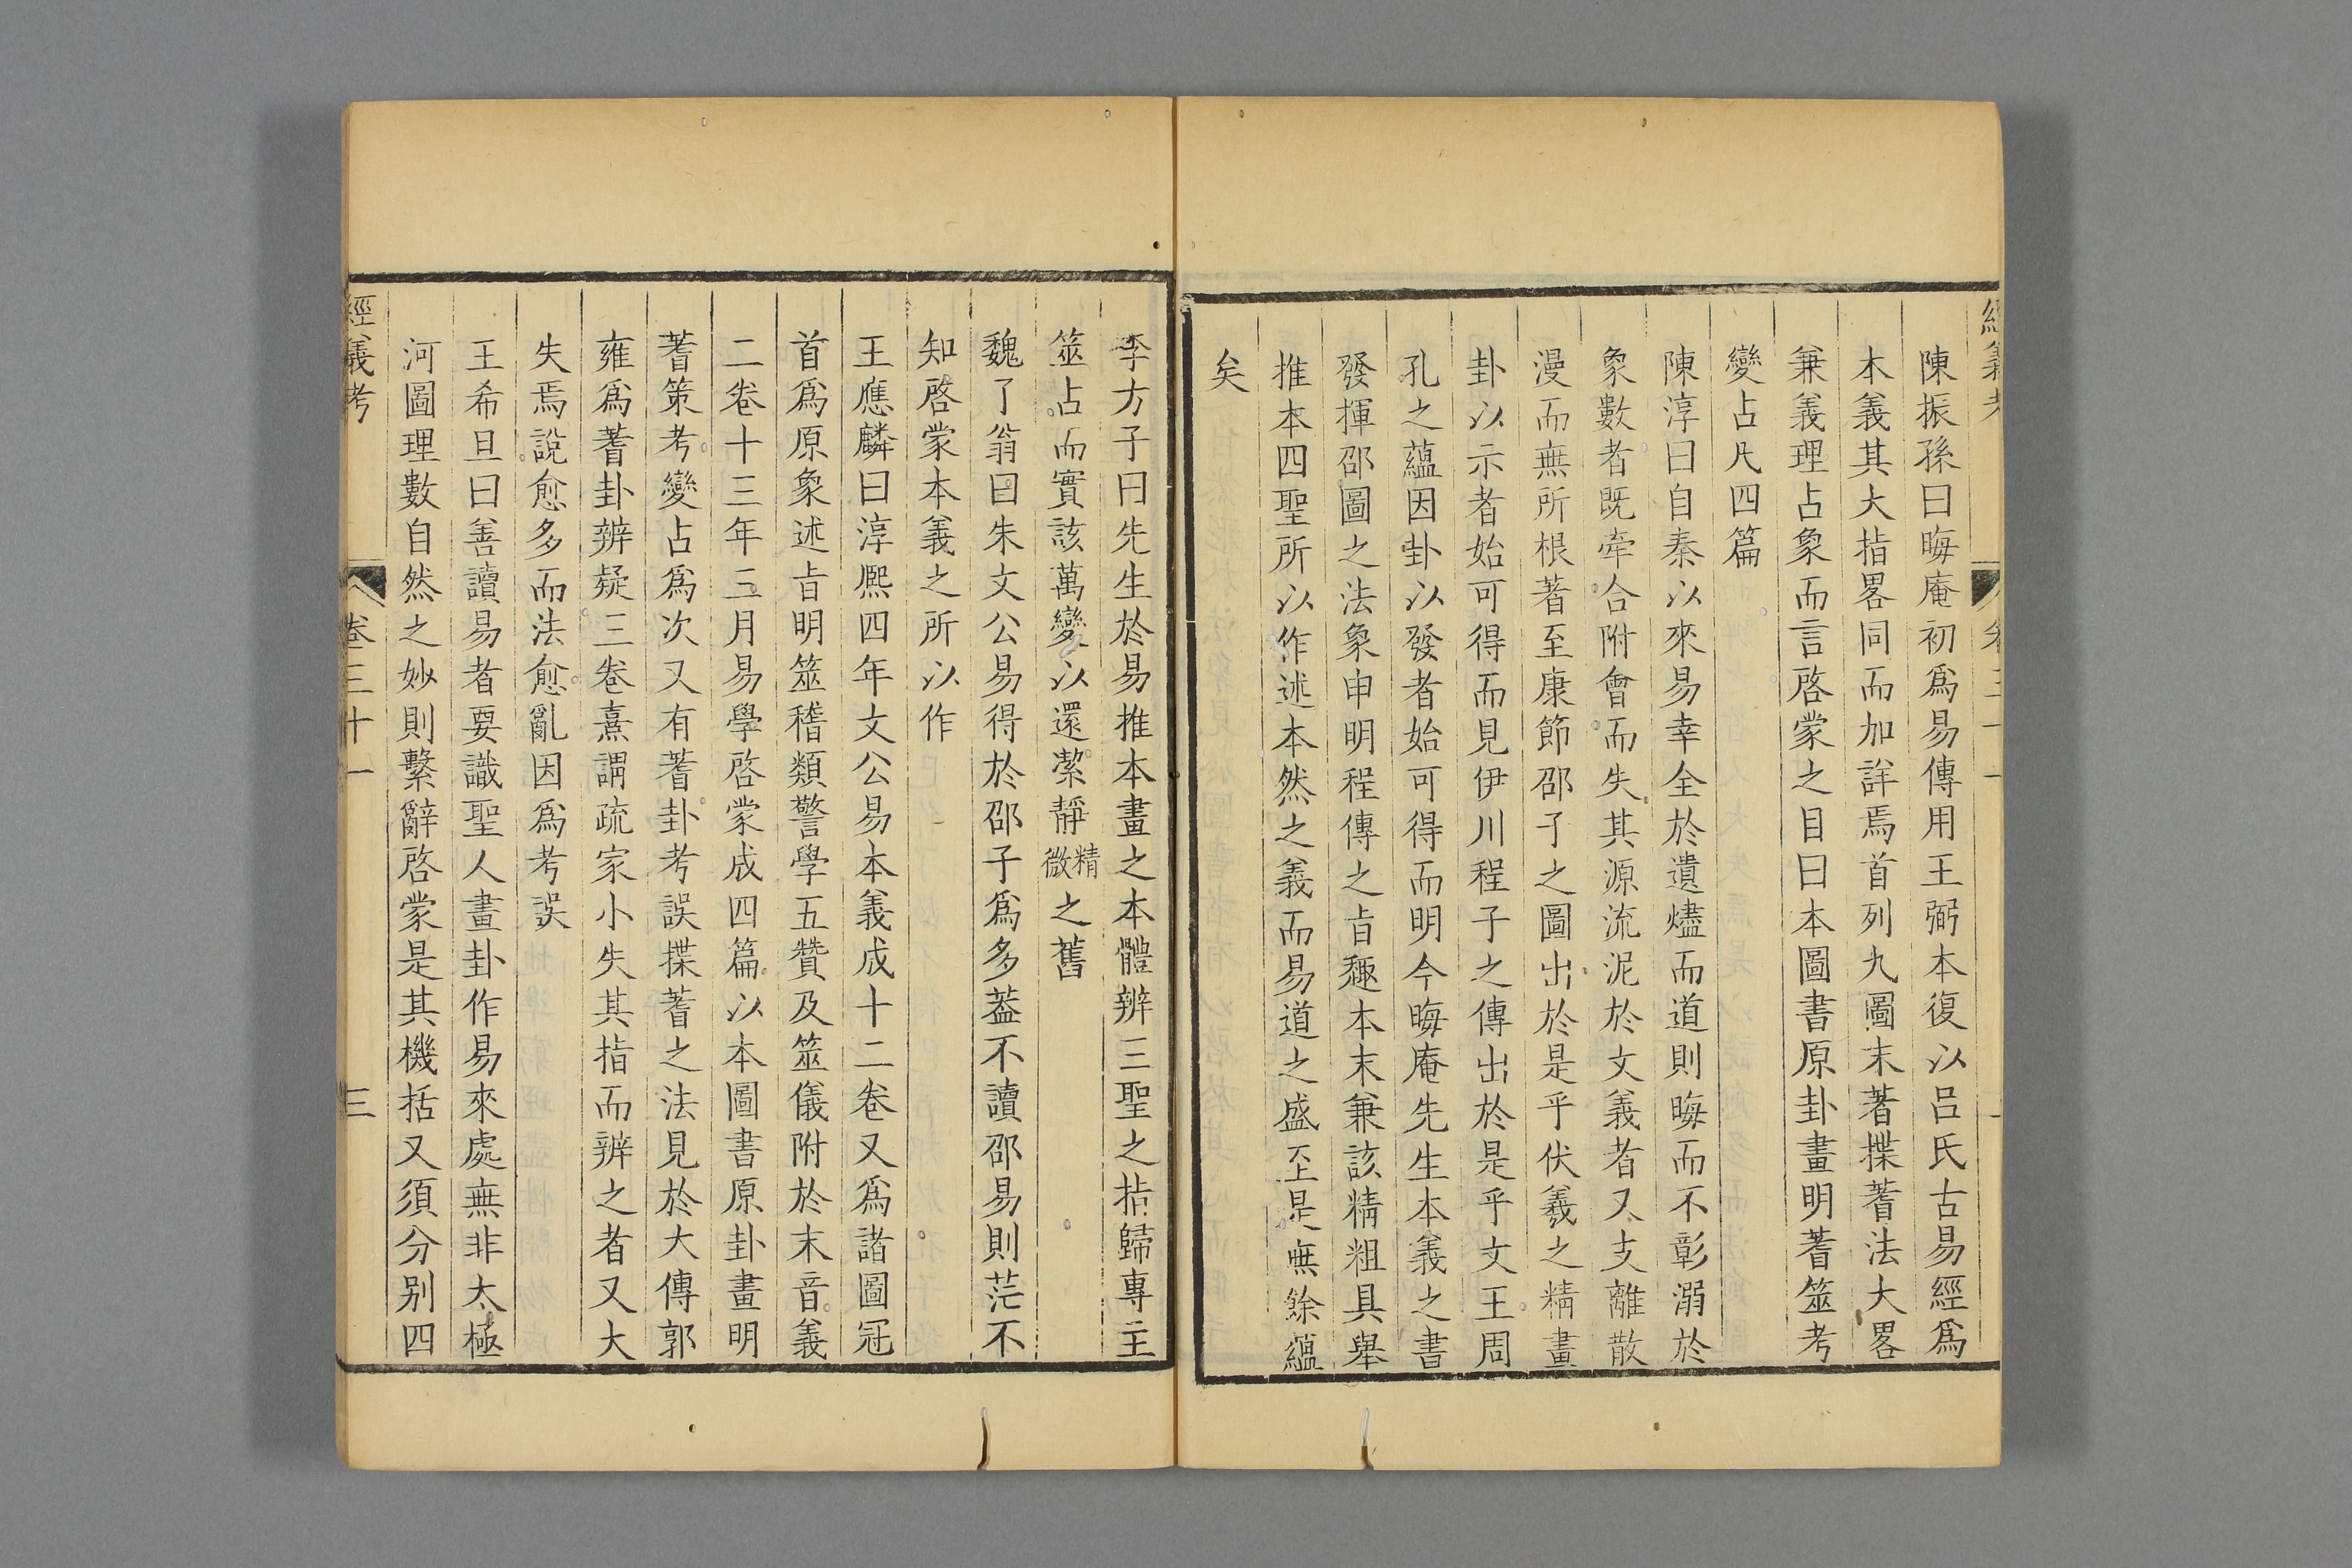 經義考
卷三十一
陳振孫曰晦庵初爲易傳用王弼本復以呂氏古易經爲
本義其大指畧同而加詳焉首列九圖末著揲蓍法大畧
兼義理占象而言啓蒙之目曰本圖書原卦畫明蓍筮考
變占凡四篇
陳淳曰自秦以來易幸全於遺燼而道則晦而不彰溺於
象數者既牽合附會而失其源流泥於文義者又支離散
漫而無所根著至康節邵子之圖出於是乎伏羲之精畫
卦以示者始可得而見伊川程子之傳出於是乎文王周
孔之蘊因卦以發者始可得而明今晦庵先生本義之書
發揮邵圖之法象申明程傳之㫖趣本末兼該精粗具舉
推本四聖所以作述本然之義而易道之盛至是無餘蘊
矣
李方子曰先生於易推本畫之本體辨三聖之指歸專主
筮占而實該萬變以還潔靜精微之舊
魏了翁曰朱文公易得於邵子爲多葢不讀邵易則茫不
知啓蒙本義之所以作
王應麟曰淳熙四年文公易本義成十二卷又爲諸圖冠
首爲原象述㫖明筮稽類警學五贊及筮儀附於末音義
二卷十三年三月易學啓蒙成四篇以本圖書原卦畫明
蓍策考變占爲次又有蓍卦考誤揲蓍之法見於大傳郭
雍爲蓍卦辨疑三卷熹謂疏家小失其指而辨之者又大
失焉說愈多而法愈亂因爲考誤
王希旦曰善讀易者要識聖人畫卦作易來處無非太極
河圖理數自然之妙則繫辭啓蒙是其機括又須分别四
經義考
卷三十一
三